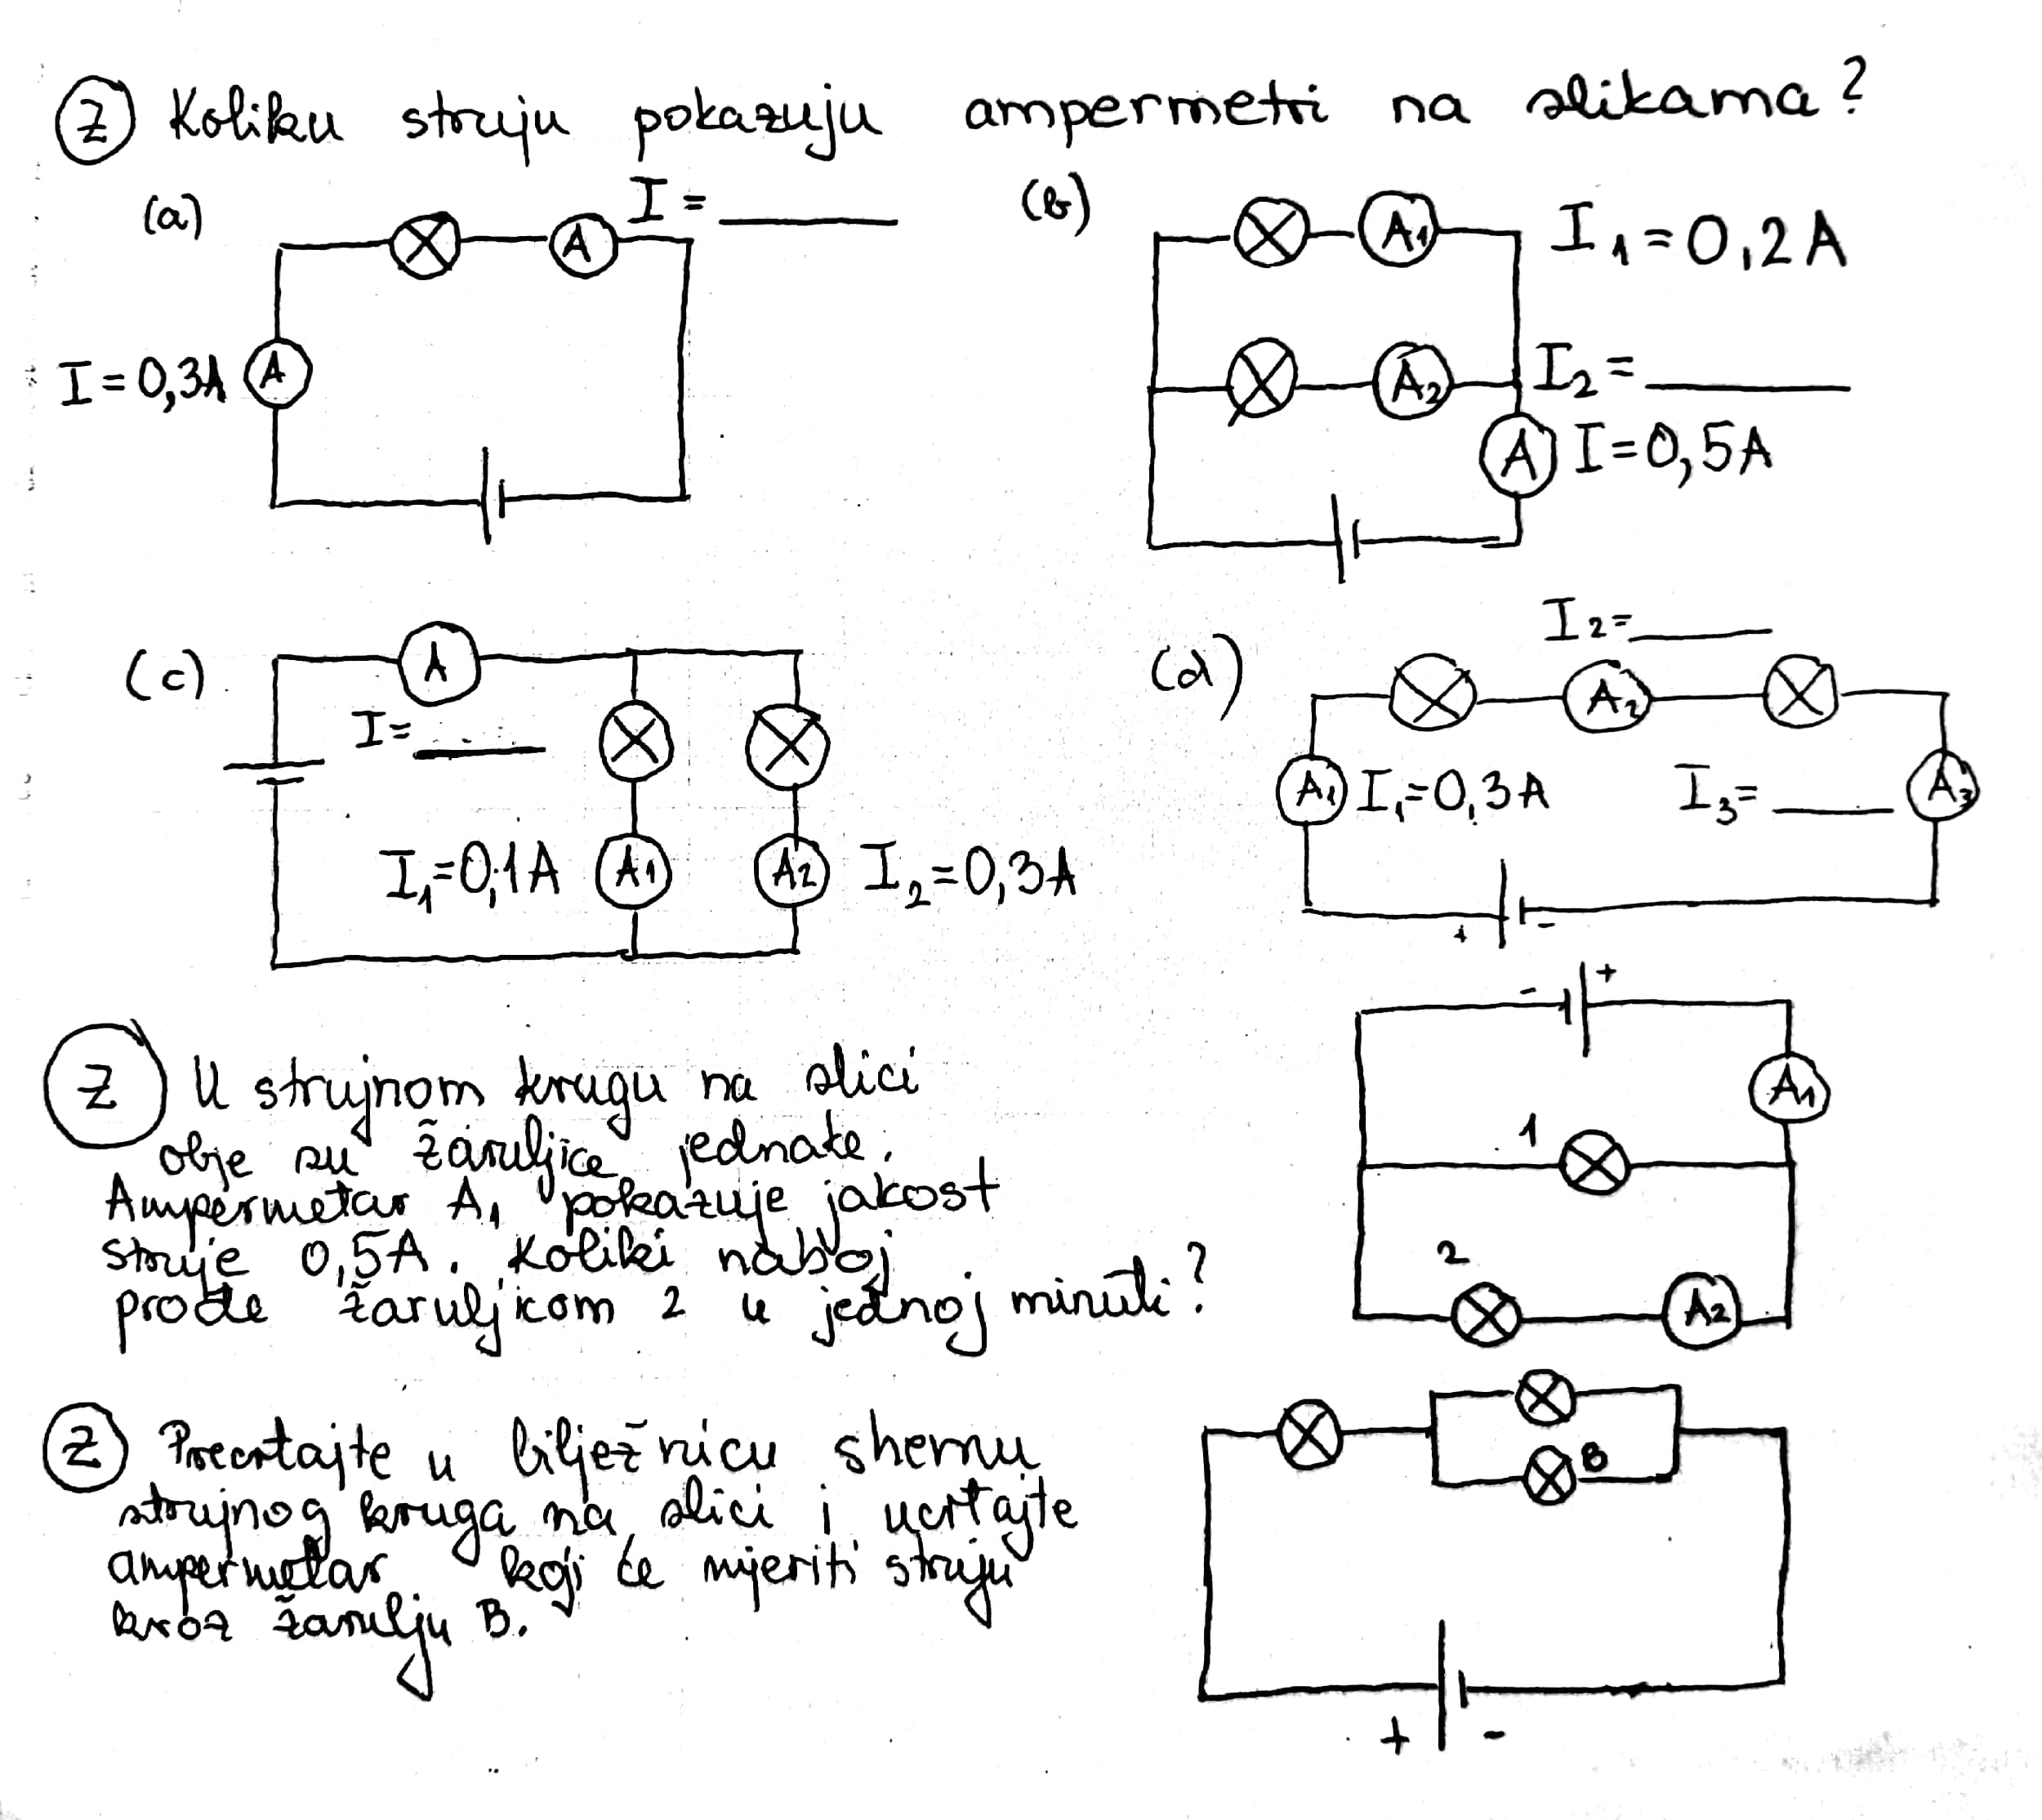 Ⓩ Koliku struju pokazuju ampermetri na slikama?
(a) I = ______
A
I = 0,3A A
(b) A1 I1 = 0,2A
A2 I2 = ______
A I = 0,5A
(c) A
I = ______
I1 = 0,1A A1 A2 I2 = 0,3A
(d) I2 = ______
A2
A1 I1 = 0,3A I3 = ______ A3
+ -
Ⓩ U strujnom krugu na slici
obje su žaruljice jednake.
Ampermetar A1 pokazuje jakost
struje 0,5A. Koliki naboj
prođe žaruljicom 2 u jednoj minuti?
- +
A1
1
2
A2
Ⓩ Precrtajte u bilježnicu shemu
strujnog kruga na slici i ucrtajte
ampermetar koji će mjeriti struju
kroz žarulju B.
B
+ -